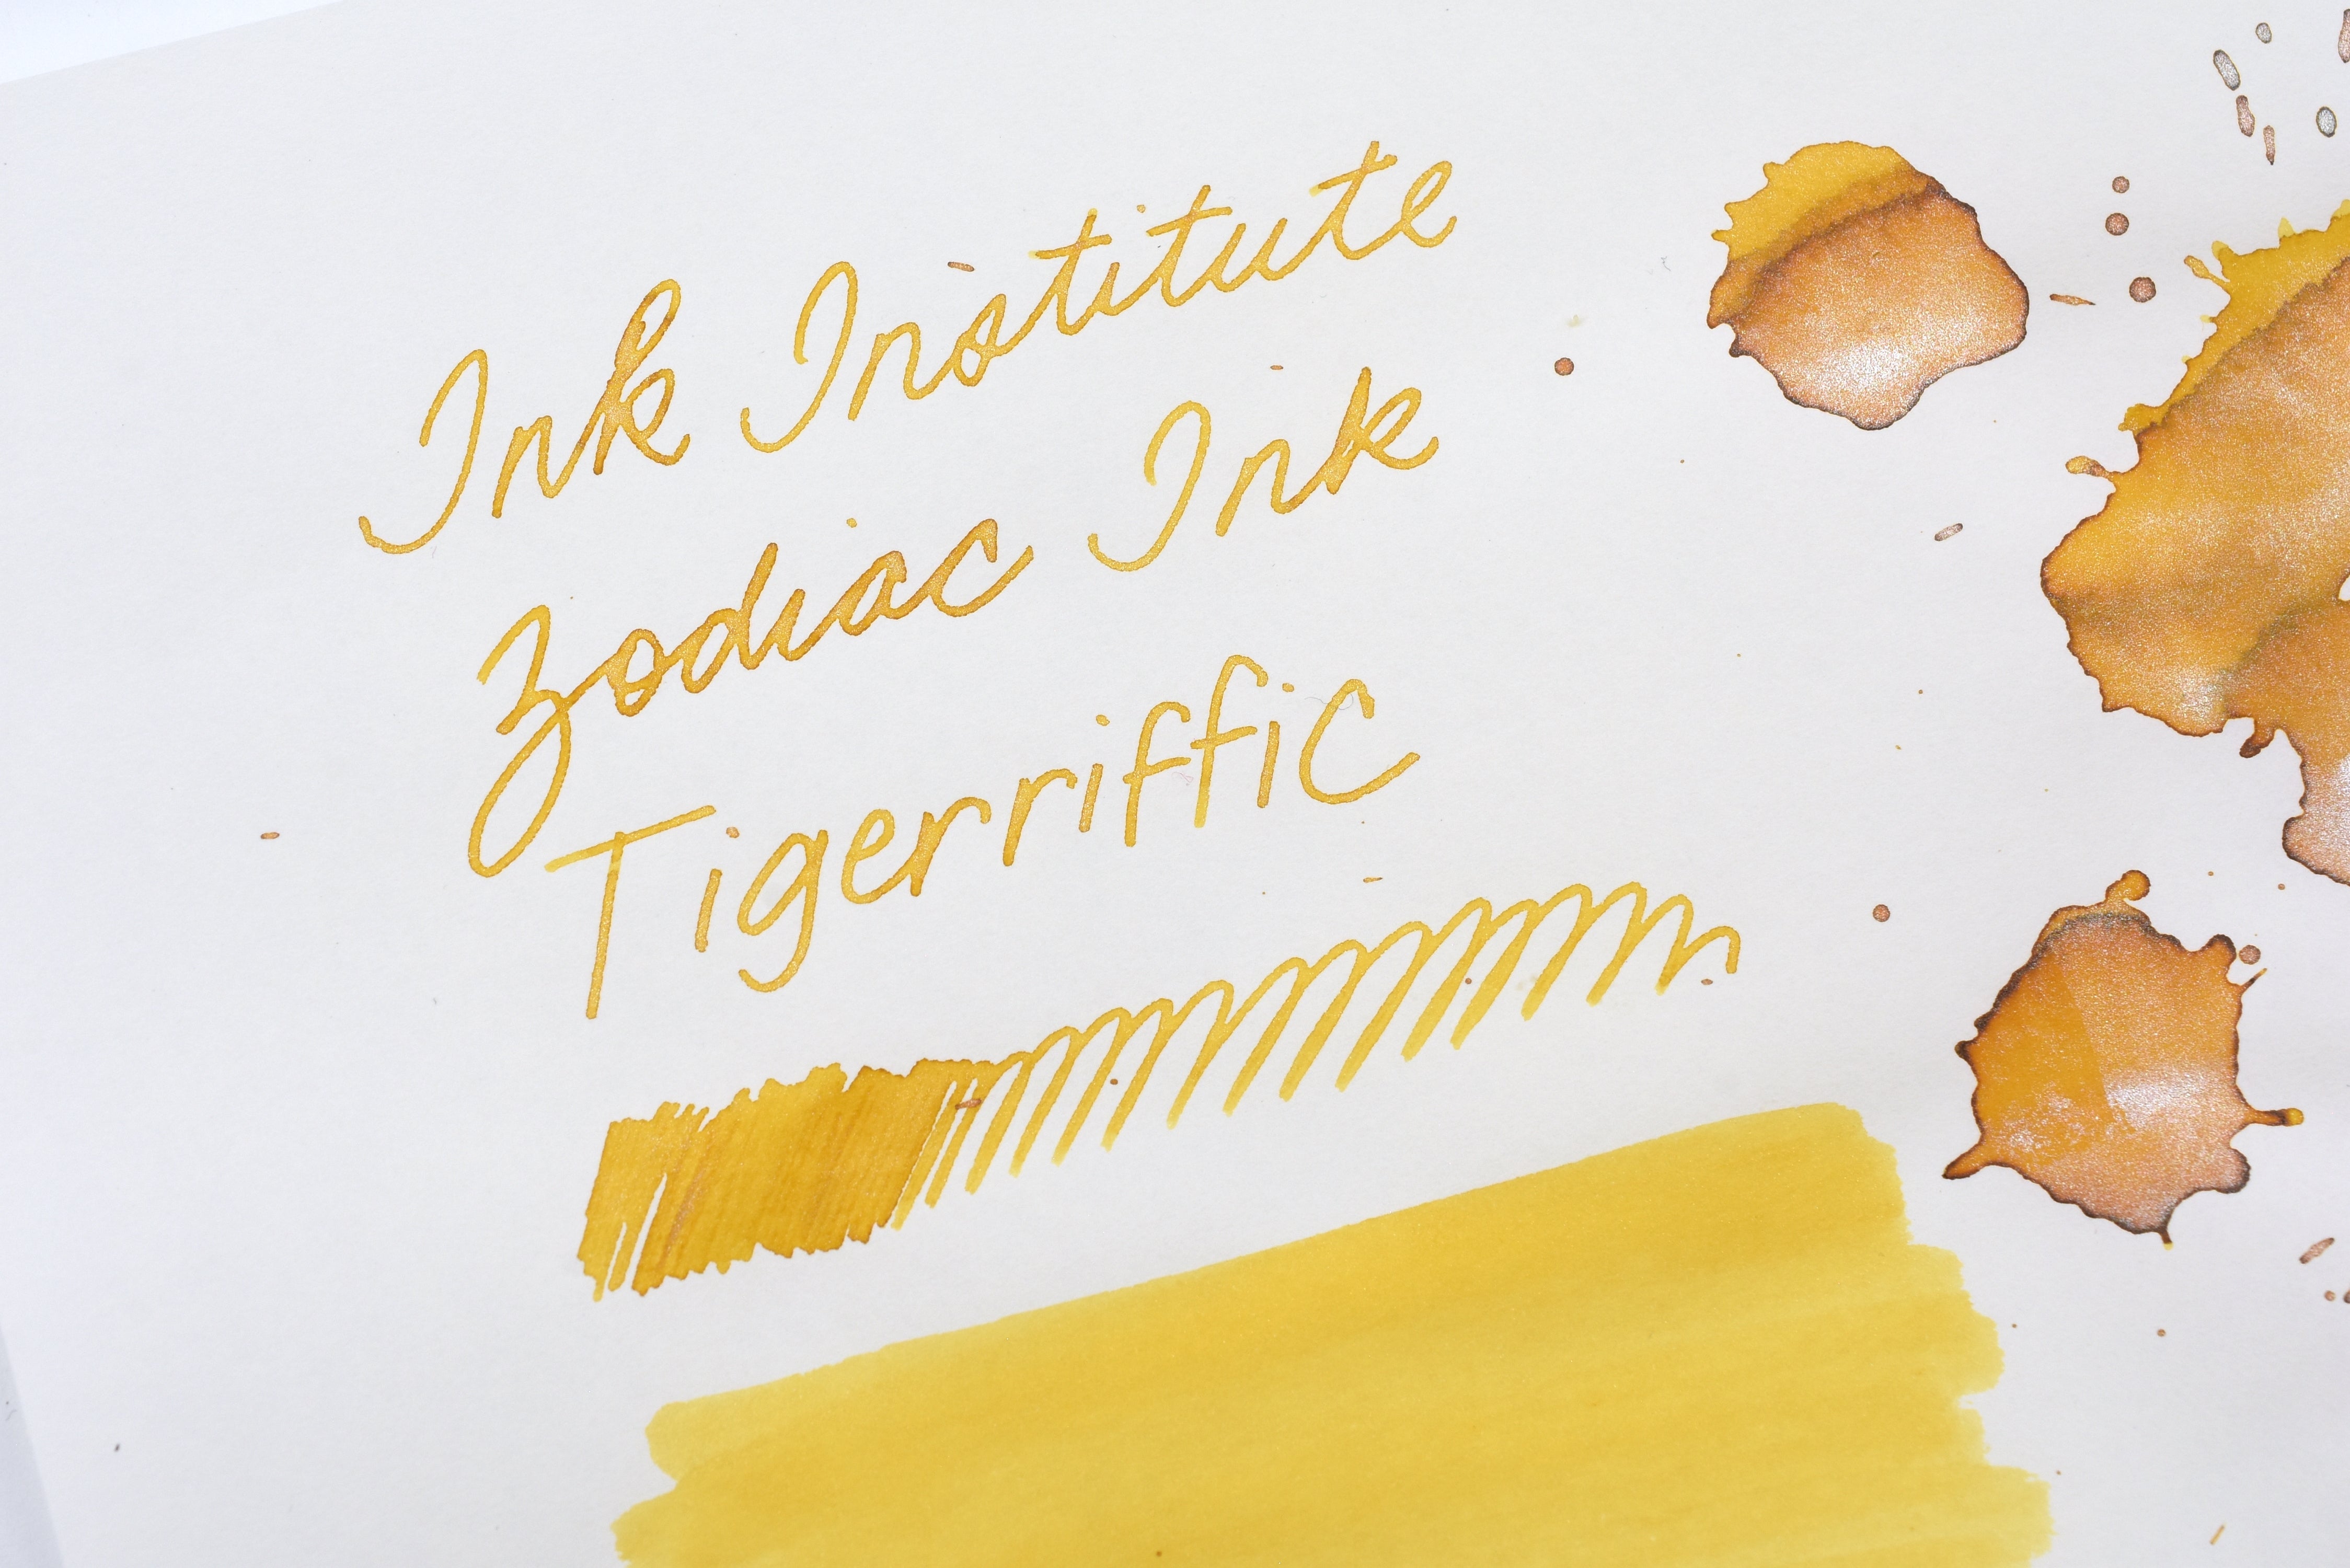 Ink Institute
Zodiac Ink
Tigerriffic